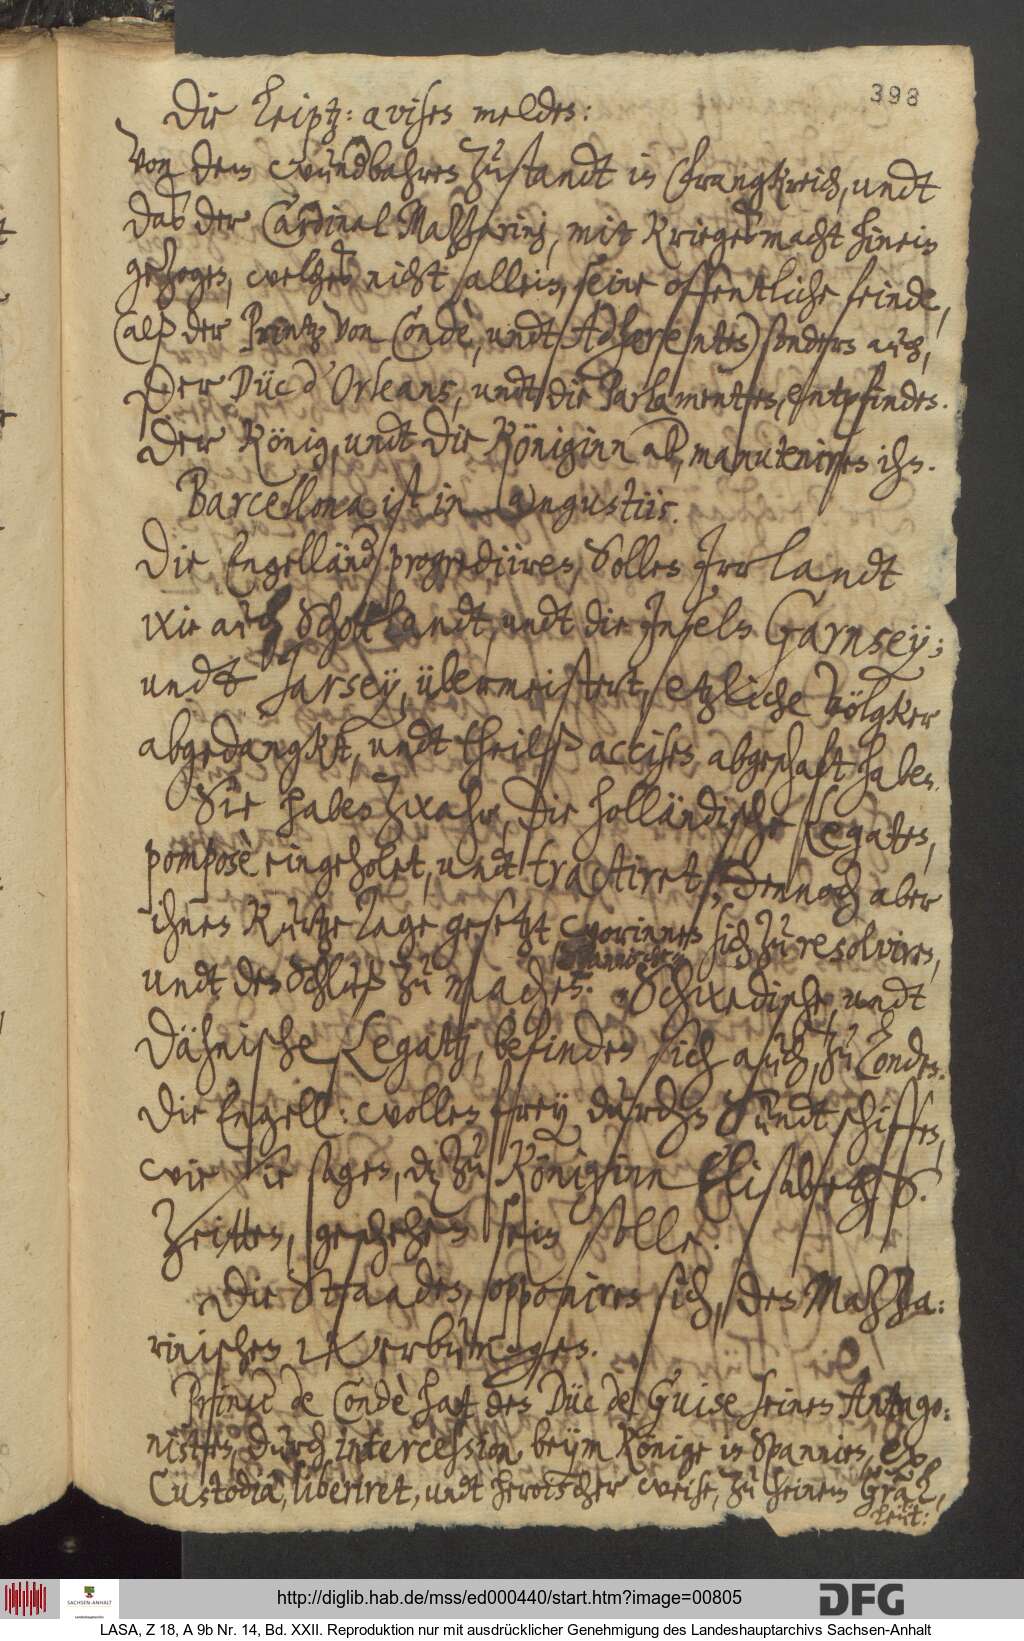 398
Die Leiptz: avisen melden:
Von dem wunderbahren Zustandt in Frangkreich, undt
das der Cardinal Mazzarinj, mit Kriegesmacht hinein
gezogen, welches nicht allein, seine offentliche feinde,
(alß der Printz von Condè, undt Adhærenten) sondern auch,
Der Düc d'Orleans, undt die Parlamenter, entpfinden.
Der König, undt die Königinn aber, manuteniren ihn.
Barcellona ist in angustiis.
Die Engelländ. progrediiren, Sollen Irrlandt
wie auch Schottlandt, undt die Inseln Garnseÿ;
undt Jarseÿ, übermeistert, etzliche Völgker
abgedangkt, undt theilß accisen, abgeschaft haben.
Sie haben Zwahr, Die holländische Legaten,
pomposè eingeholet, undt tractiret, Dennoch aber
ihnen Kurtze Tage gesetzt worinnen sich zu resolviren,
undt den Schluß zu machen. Schwedische, undt
Dähnische Legatj, befinden sich auch, zu Londen.
Die Engell: wollen freÿ durchn Sundt schiffen,
wie Sie sagen, dz zu Königinn Elisabeth, S.
Zeitten, geschehen sein solle.
Die Staaden, opponiren sich, den Mazza:
rinischen Werbungen.
Prince de Condè hat den Düc de Guise seinen Antago:
nisten, durch intercession, beÿm Könige in Spannien, ex
Custodia, liberiret, undt heroischer weise, zu seinem Gral,
Leut:
http://diglib.hab.de/mss/ed000440/start.htm?image=00805
DFG
SACHSEN-ANHALT
LASA, Z 18, A 9b Nr. 14, Bd. XXII. Reproduktion nur mit ausdrücklicher Genehmigung des Landeshauptarchivs Sachsen-Anhalt